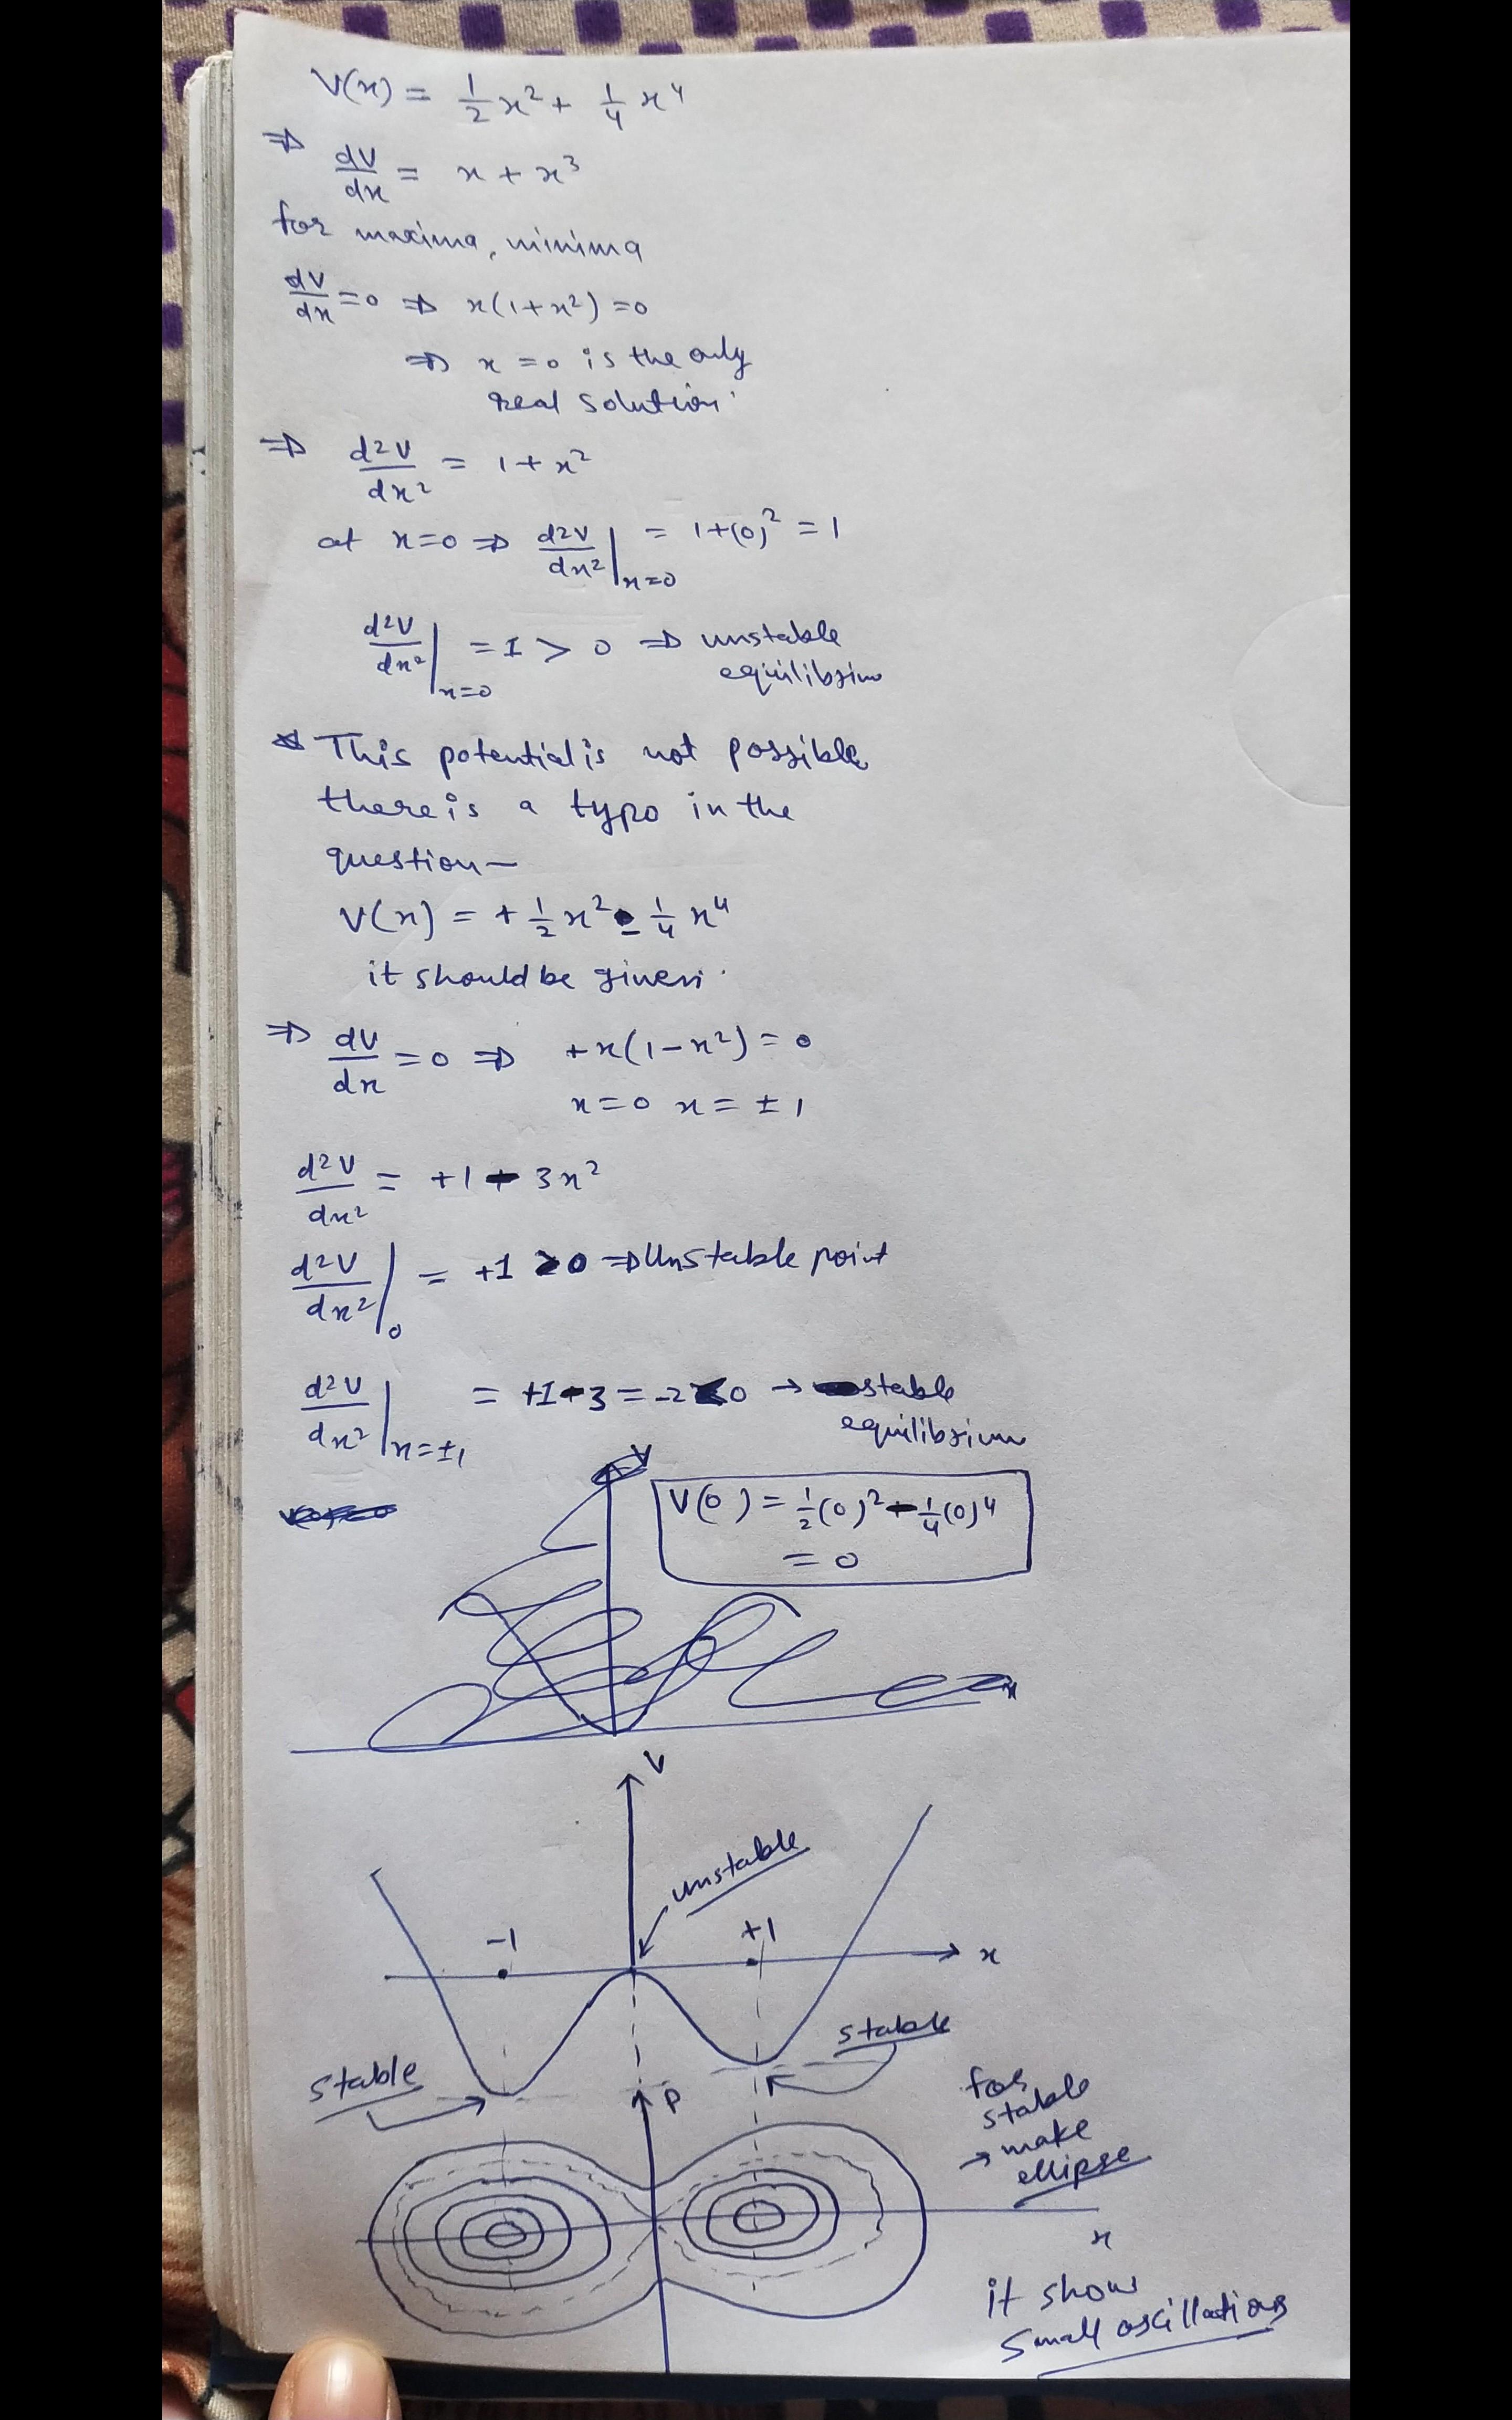 V(x) = 1/2 x² + 1/4 x⁴
⇒ dV/dx = x + x³
for maxima, minima
dV/dx = 0 ⇒ x(1+x²) = 0
⇒ x = 0 is the only
real solution.
⇒ d²V/dx² = 1 + x²
at x=0 ⇒ d²V/dx² |x=0 = 1+(0)² = 1
d²V/dx² |x=0 = 1 > 0 ⇒ unstable
equilibrium
* This potential is not possible
there is a typo in the
question—
V(x) = + 1/2 x² - 1/4 x⁴
it should be given.
⇒ dV/dx = 0 ⇒ +x(1-x²) = 0
x=0 x = ±1
d²V/dx² = +1 - 3x²
d²V/dx² |0 = +1 > 0 ⇒ Unstable point
d²V/dx² |x=±1 = +1-3 = -2 < 0 → stable
equilibrium
V(0) = 1/2(0)² - 1/4(0)⁴
= 0
x
V
unstable
-1
+1
x
stable
stable
P
for
stable
→ make
ellipse
x
it show
small oscillations